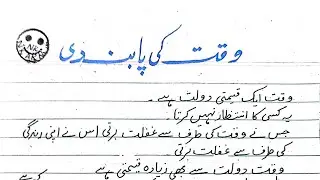 وقت کی پابندی
وقت ایک قیمتی دولت ہے۔
یہ کسی کا انتظار نہیں کرتا۔
جس نے وقت کی طرف سے غفلت برتی اس نے اپنی زندگی
کی طرف سے غفلت برتی۔
وقت دولت سے بھی زیادہ قیمتی ہے